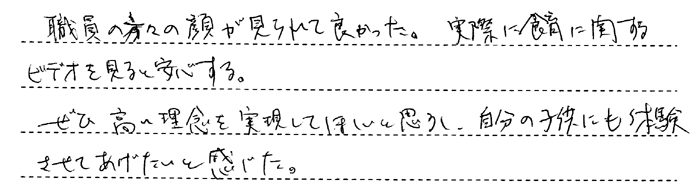 職員の方々の顔が見られて良かった。実際に食育に関する
ビデオを見ると安心する。
ぜひ高い理念を実現してほしいと思うし、自分の子供にも体験
させてあげたいと感じた。